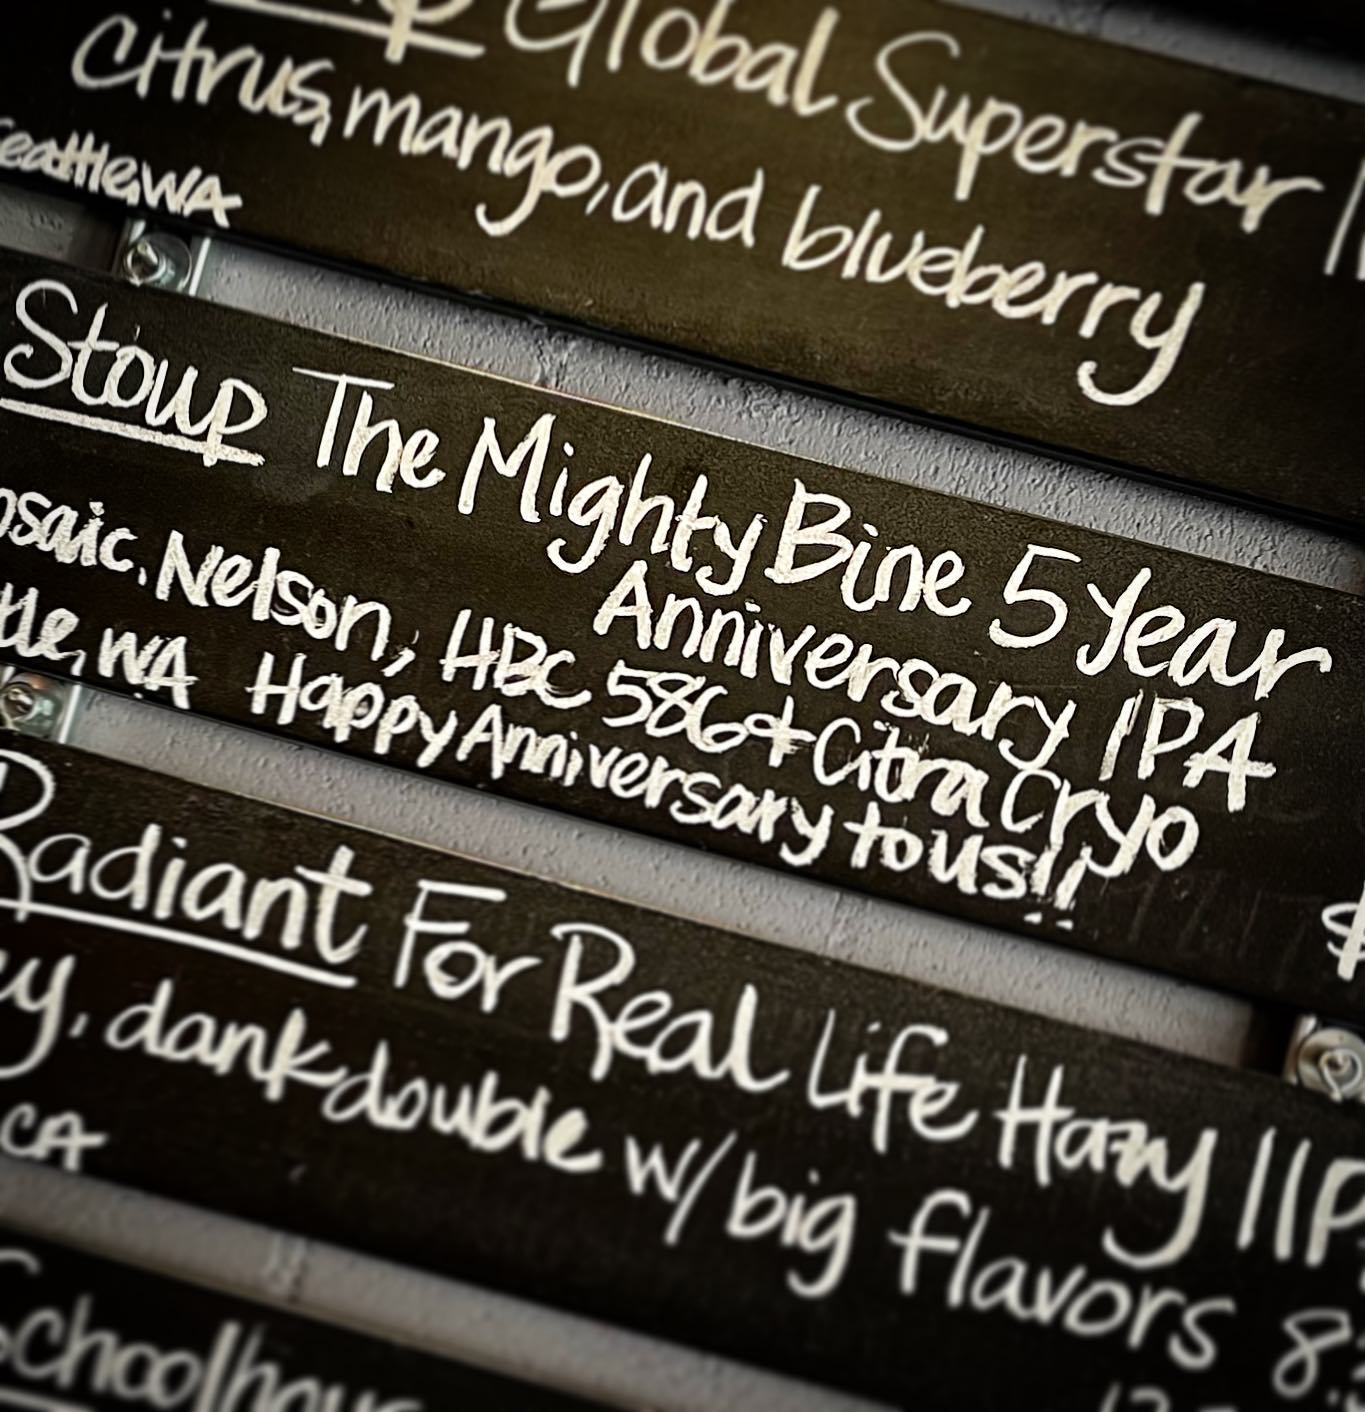 Global Superstar
Citrus, mango, and blueberry
Seattle, WA
Stoup The Mighty Bine 5 Year
Anniversary IPA
Nelson, HBC 586 + Citra Cryo
WA Happy Anniversary to us!!
$
Radiant For Real Life Hazy
dank double w/ big flavors
CA